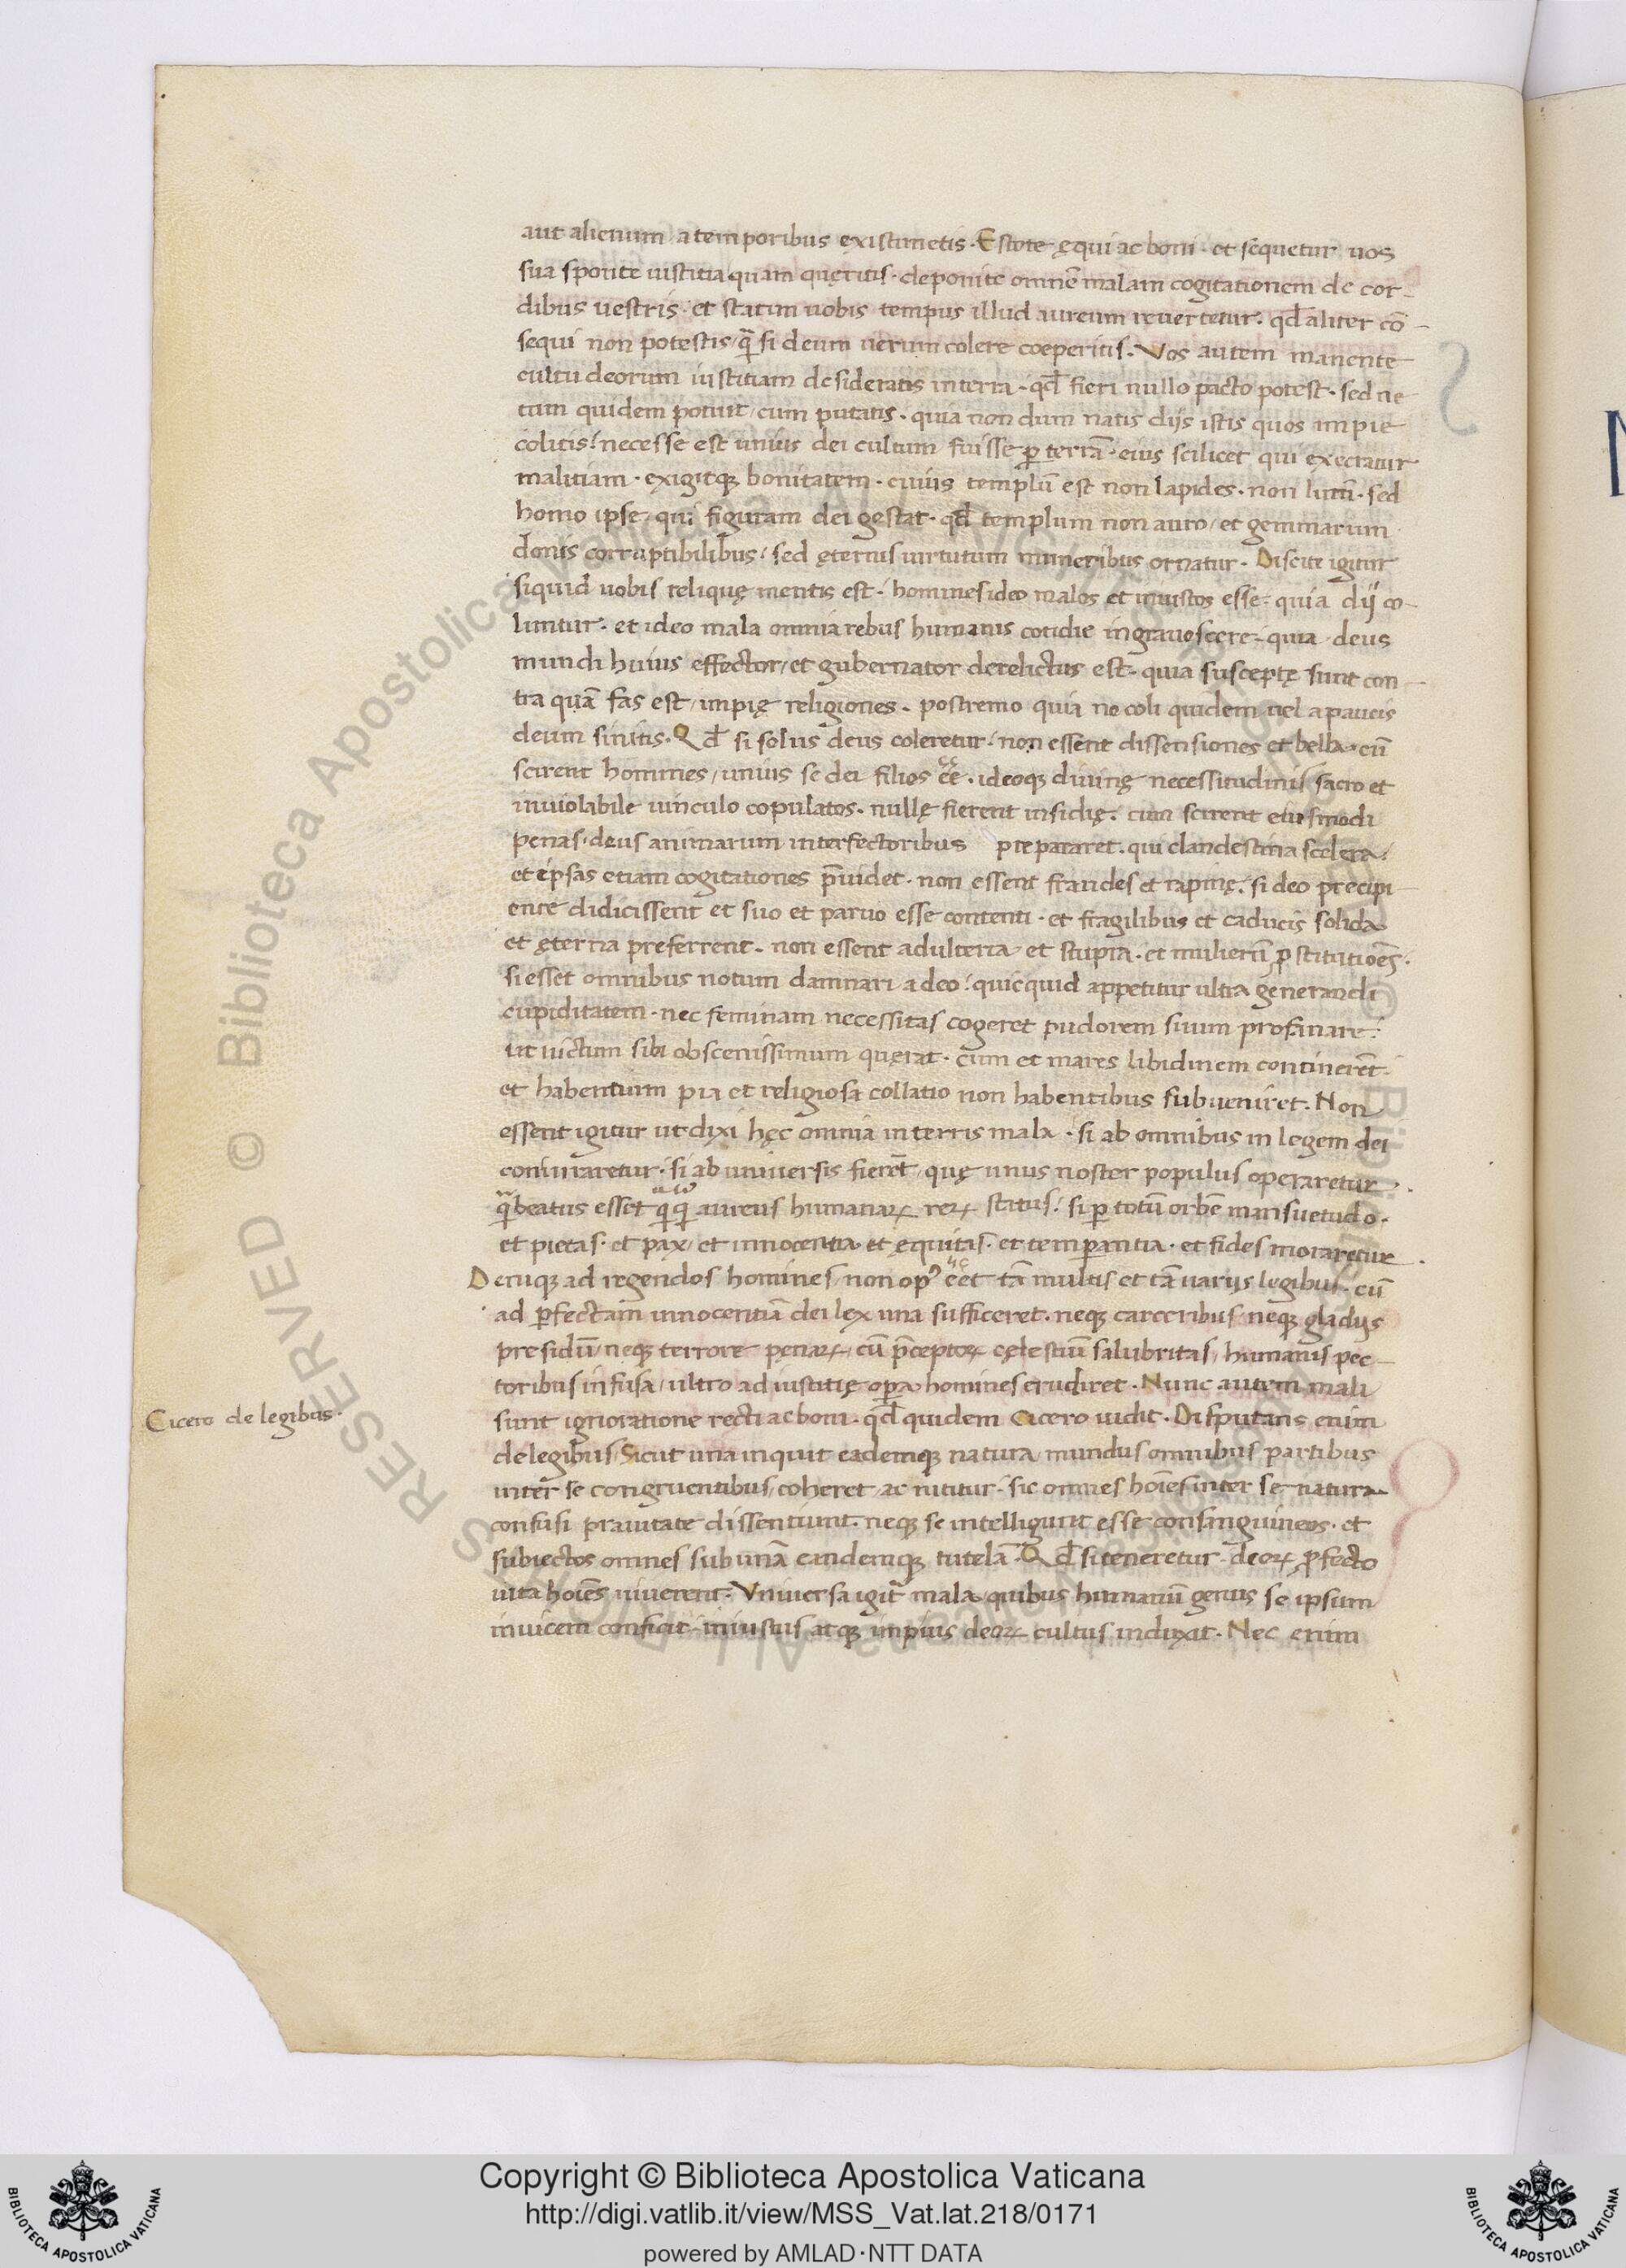 aut alienum a temporibus existimetis. Estote ęqui ac boni. et sequetur uos
sua sponte iustitia quam quęritis. deponite omnē malam cogitationem de cor-
dibus uestris. et statim uobis tempus illud aureum reuertetur. qđ aliter cō-
sequi non potestis, q̄ si deum uerum colere coeperitis. Vos autem manente
cultu deorum iustitiam desideratis in terra. qđ fieri nullo pacto potest. sed ne
tum quidem potuit, cum putatis. quia non dum natis dijs istis quos impie
colitis: necesse est unius dei cultum fuisse ꝑ terrā. eius scilicet qui execratur
malitiam. exigitqꝫ bonitatem. cuius templū est non lapides. non lutū. sed
homo ipse, qui figuram dei gestat. qđ templum non auro, et gemmarum
donis corruptibilibus, sed ęternis uirtutum muneribus ornatur. Discite igitur
siquid uobis reliquę mentis est. homines ideo malos et iniustos esse. quia dij co-
luntur. et ideo mala omnia rebus humanis cotidie ingrauescere. quia deus
mundi huius effector, et gubernator derelictus est. quia susceptę sunt con-
tra quā fas est, impię religiones. postremo quia ne coli quidem uel a paucis
deum sinitis. Qđ si solus deus coleretur. non essent dissensiones et bella. cū
scirent homines, unius se dei filios eē. ideoqꝫ diuinę necessitudinis sacro et
inuiolabile uinculo copulatos. nullę fierent insidię. cum scirent eiusmodi
penas, deus animarum interfectoribus prepararet. qui clandestina scelera,
et ipsas etiam cogitationes p̄uidet. non essent fraudes et rapinę. si deo precipi-
ente didicissent et suo et paruo esse contenti. et fragilibus et caducis solida
et ęterna preferrent. non essent adulteria, et stupra. et mulierū ꝓstitutiōes.
si esset omnibus notum damnari a deo: quicquid appetitur ultra generandi
cupiditatem. nec feminam necessitas cogeret pudorem suum profanare:
ut uictum sibi obscenissimum quęrat. cum et mares libidinem continerēt.
et habentium pia et religiosa collatio non habentibus subueniret. Non
essent igitur ut dixi hęc omnia in terris mala. si ab omnibus in legem dei
coniuraretur. si ab uniuersis fierēt, quę unus noster populus operaretur.
q̄ beatus esset q̄q̄ aureus humanaꝝ reꝝ status. si ꝑ totū orbē mansuetudo.
et pietas. et pax, et innocentia et ęquitas. et temꝑantia. et fides moraretur.
Deniqꝫ ad regendos homines, non opꝰ eēt tā multis et tā uarijs legibus. cū
ad ꝑfectam innocentiā dei lex una sufficeret. neqꝫ carceribus, neqꝫ gladijs
presidū, neqꝫ terrore pęnaꝝ, cū p̄ceptoꝝ cęlestiū salubritas, humanis pec-
toribus infusa, ultro ad iustitię oꝑa homines erudiret. Nunc autem mali
sunt ignoratione recti ac boni. qđ quidem Cicero uidit. Disputans enim
de legibus, Sicut una inquit eademqꝫ natura, mundus omnibus partibus
inter se congruentibus, coheret ac nititur. sic omnes hoīes inter se natura
confusi prauitate dissentiunt. neqꝫ se intelligunt esse consanguineos. et
subiectos omnes sub unā eandemqꝫ tutelā. Qđ si teneretur. deoꝝ ꝓfecto
uita hoīes uiuerent. Vniuersa igit̄ mala, quibus humanū genus se ipsum
inuicem conficit. iniustus atqꝫ impius deoꝝ cultus induxit. Nec enim
Cicero de legibus.
Copyright © Biblioteca Apostolica Vaticana
http://digi.vatlib.it/view/MSS_Vat.lat.218/0171
powered by AMLAD·NTT DATA